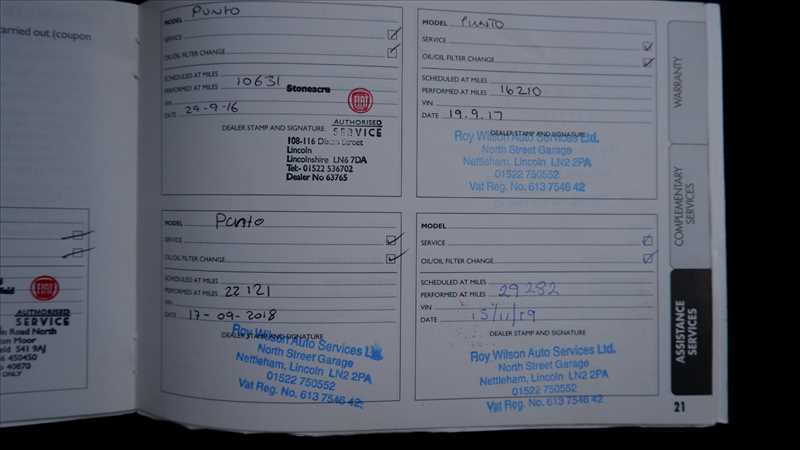 carried out (coupon
MODEL Punto
SERVICE
OIL/OIL FILTER CHANGE
SCHEDULED AT MILES
PERFORMED AT MILES 10631
VIN
DATE 29-9-16
Stoneacre
FIAT
AUTHORISED
SERVICE
DEALER STAMP AND SIGNATURE
108-116 Dixon Street
Lincoln
Lincolnshire LN6 7DA
Tel:- 01522 536702
Dealer No 63765
MODEL PUNTO
SERVICE
OIL/OIL FILTER CHANGE
SCHEDULED AT MILES
PERFORMED AT MILES 16210
VIN
DATE 19.9.17
DEALER STAMP AND SIGNATURE
Roy Wilson Auto Services Ltd.
North Street Garage
Nettleham, Lincoln LN2 2PA
01522 750552
Vat Reg. No. 613 7546 42
MODEL Punto
SERVICE
OIL/OIL FILTER CHANGE
SCHEDULED AT MILES
PERFORMED AT MILES 22121
VIN
DATE 17-09-2018
DEALER STAMP AND SIGNATURE
Roy Wilson Auto Services Ltd.
North Street Garage
Nettleham, Lincoln LN2 2PA
01522 750552
Vat Reg. No. 613 7546 42
MODEL
SERVICE
OIL/OIL FILTER CHANGE
SCHEDULED AT MILES
PERFORMED AT MILES 29282
VIN
DATE 15/11/19
DEALER STAMP AND SIGNATURE
Roy Wilson Auto Services Ltd.
North Street Garage
Nettleham, Lincoln LN2 2PA
01522 750552
Vat Reg. No. 613 7546 42
FIAT
AUTHORISED
SERVICE
Road North
Moor
S41 9AJ
450450
40870
ONLY
WARRANTY
COMPLEMENTARY
SERVICES
ASSISTANCE
SERVICES
21